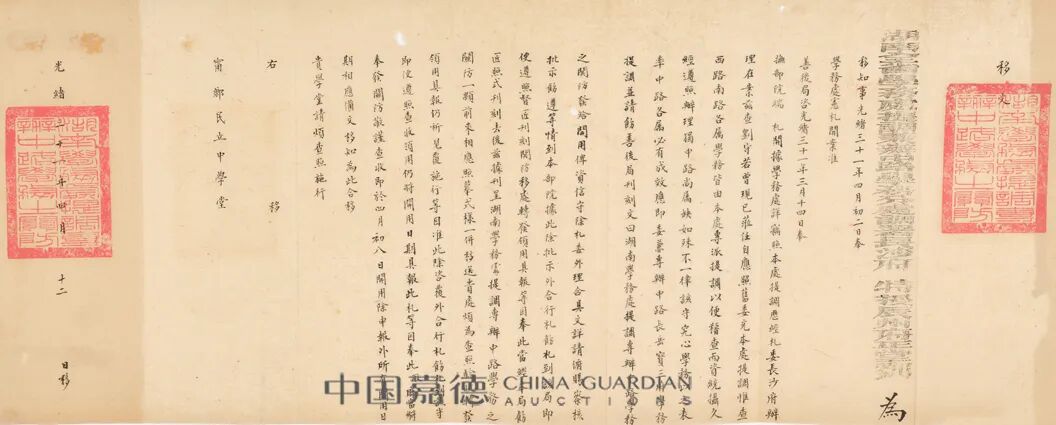 為
移知事光緒三十一年四月初二日奉
學務處憲札開案准
善後局咨光緒三十一年三月十四日奉
撫部院端 札開據學務處詳竊照本處提調歷經札委長沙府辦
理在案茲查劉守若曾現已蒞任自應照舊委充本處提調惟查
西路南路各屬學務皆由本處專派提調以便稽查而資統攝久
經遵照辦理獨中路尚屬缺如殊不一律該守究心學務以之表
率中路各屬必有成效應即委兼專辦中路長岳寶三府學務
提調並請飭善後局刊刻文曰湖南學務處提調專辦中路學務
之關防發給開用俾資信守除札委外理合具文詳請俯賜察核
批示飭遵等情到本部院據此除批示外合行札飭札到該局即
便遵照督匠刊刻關防移處轉發領用具報等因奉此當經本局飭
匠照式刊刻去後茲據刊呈湖南學務處提調專辦中路學務之
關防一顆前來相應照摹式樣一併移送貴處煩為查照
領用具報仍祈見覆施行等因准此除咨覆外合行札飭札到該守
即便遵照查收領用仍將開用日期具報此札等因奉此
奉發關防敬謹查收即於四月初八日開用除申報外所有開用日
期相應備文移知為此合移
貴學堂請煩查照施行
右 移
甯鄉民立中學堂
光緒三十一年四月十二日移
中国嘉德 CHINA GUARDIAN
AUCTIONS